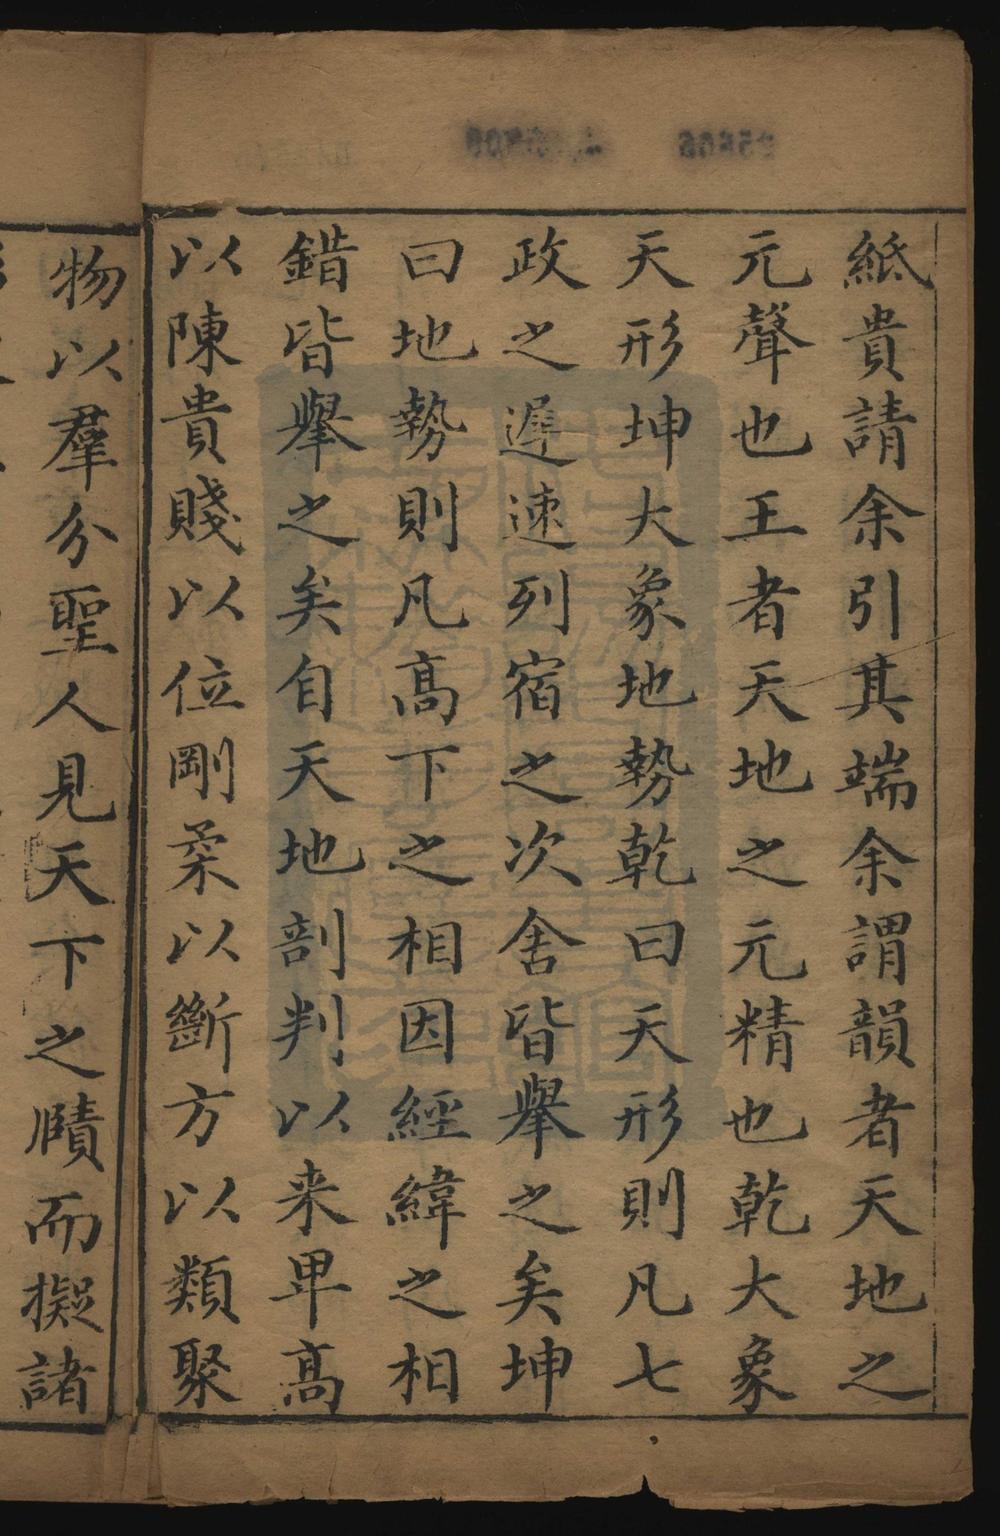 紙貴請余引其端余謂韻者天地之
元聲也王者天地之元精也乾大象
天形坤大象地勢乾曰天形則凡七
政之遲速列宿之次舍皆舉之矣坤
曰地勢則凡高下之相因經緯之相
錯皆舉之矣自天地剖判以来卑高
以陳貴賤以位剛柔以斷方以類聚
物以羣分聖人見天下之賾而擬諸